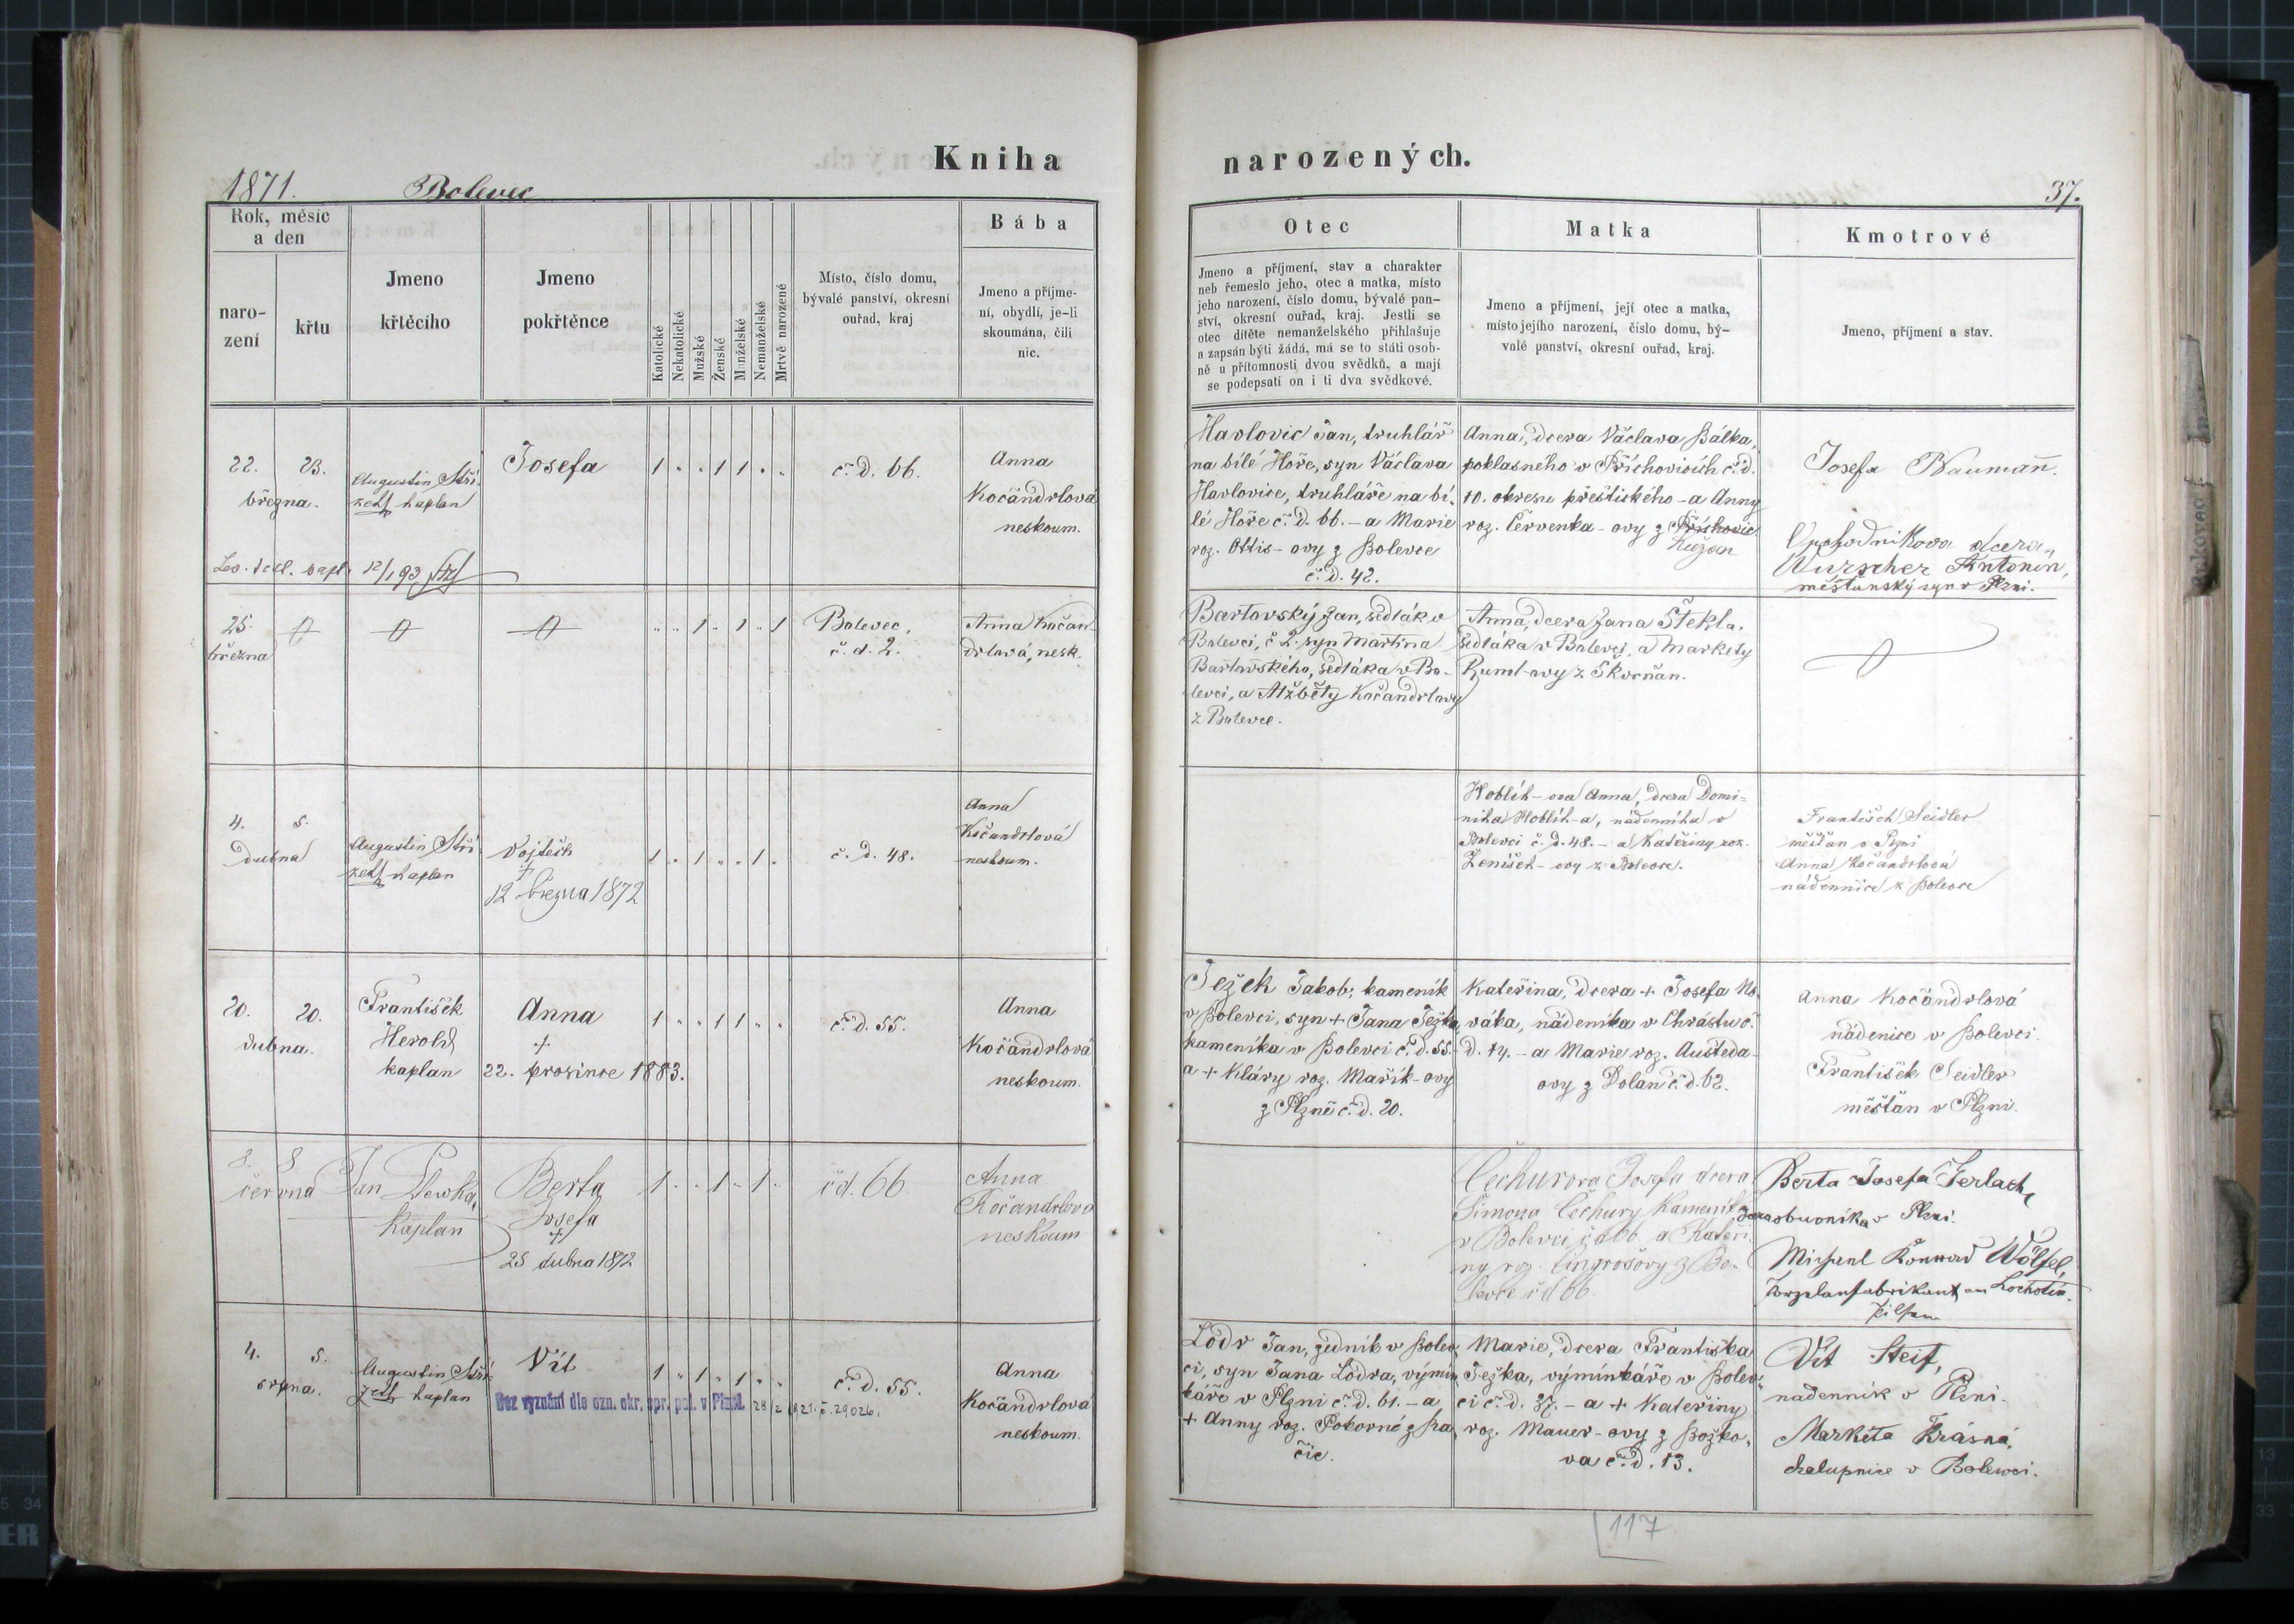 Kniha
narozených.
1871.
Bolevec
37.
Rok, měsíc
a den
naro-
zení
křtu
Jmeno
křtěcího
Jmeno
pokřtěnce
Katolické
Nekatolické
Mužské
Ženské
Manželské
Nemanželské
Mrtvě narozené
Místo, číslo domu,
bývalé panství, okresní
ouřad, kraj
Bába
Jmeno a příjme-
ní, obydlí, je-li
skoumána, čili
nic.
Otec
Jmeno a příjmení, stav a charakter
neb řemeslo jeho, otec a matka, místo
jeho narození, číslo domu, bývalé pan-
ství, okresní ouřad, kraj. Jestli se
otec dítěte nemanželského přihlašuje
a zapsán býti žádá, má se to státi osob-
ně u přítomnosti dvou svědků, a mají
se podepsati on i ti dva svědkové.
Matka
Jmeno a příjmení, její otec a matka,
místo jejího narození, číslo domu, bý-
valé panství, okresní ouřad, kraj.
Kmotrové
Jmeno, příjmení a stav.
22. 23.
března.
Augustin Stři-
kaplan
Josefa
1 " " 1 1 " "
č. d. 66.
Anna
Kočandrlová
neskoum.
12/1 93
Havlovic Jan, truhlář
na bílé Hoře, syn Václava
Havlovice, truhláře na bí-
lé Hoře č. d. 66. - a Marie
roz. Ottis-ovy z Bolevce
č. d. 42.
Anna, dcera Václava Bálka,
poklasného v Příchovicích č. d.
10. okresu přeštického - a Anny
roz. Červenka-ovy z Příchovic
Lužan
Josefa Naumann.
dcera,
Wurscher Antonín,
měšťanský syn v Plzni.
25.
března
" " 1 " 1 " 1
Bolevec,
č. d. 2.
Anna Kočan-
drlová, nesk.
Bartovský Jan, sedlák v
Bolevci, č 2. syn Martina
Bartovského, sedláka v Bo-
levci, a Alžběty Kočandrlovy
z Bolevce.
Anna, dcera Jana Štekla,
sedláka v Bolevci, a Markety
Ruml-ovy z Škocňan.
4. 5.
dubna
Augustin Stři-
kaplan
Vojtěch
+
12 března 1872
1 " 1 " " 1 "
č. d. 48.
Anna
Kočandrlová
neskoum.
Hoblíh-ova Anna, dcera Domi-
nika Hoblíh-a, nádenníka v
Bolevci č. d. 48. - a Kateřiny roz.
Ženíšek-ovy z Bolevce.
František Seidler
měšťan v Plzni
Anna Kočandrlová
nádennice z Bolevce
20. 20.
dubna.
František
Herold
kaplan
Anna
+
22. prosince 1883.
1 " " 1 1 " "
č. d. 55.
Anna
Kočandrlová
neskoum.
Ježek Jakob, kameník
v Bolevci, syn + Jana Ježka,
kameníka v Bolevci č. d. 55.
a + Kláry roz. Mařík-ovy
z Plzně č. d. 20.
Kateřina, dcera + Josefa No-
váka, nádeníka v Chrástu č.
d. 14. - a Marie roz. Aušteda-
ovy z Dolan č. d. 62.
Anna Kočandrlová
nádenice v Bolevci.
František Seidler
měšťan v Plzni.
8. 8
června
Jan
Kaplan
Berta
Josefa
+
25 dubna 1872
1 " " 1 " 1 "
čd. 66
Anna
Kočandrlova
neskoum
Čechurova Josefa dcera
Šimona Čechury Kameníka
v Bolevci čd 66 a Kateři-
ny roz. Cingrošovy z Bo-
levce čd 66.
Berta Josefa Gerlach,
v Plzni.
Michael Konrad Wölfel,
Porzelanfabrikant am Lochotin
Pilsen
4. 5.
srpna.
Augustin Stři-
kaplan
Vít
Bez vyznání dle ozn. okr. spr. pol. v Plzni. 28/2 1921. č. 29026.
1 " 1 " 1 " "
č. d. 55.
Anna
Kočandrlová
neskoum.
Lódr Jan, zedník v Bolev-
ci, syn Jana Lódra, výmin-
káře v Plzni č. d. 61. - a
+ Anny roz. Pokorné z Ra-
čic.
Marie, dcera Františka
Ježka, výminkáře v Bolev-
ci č. d. 37. - a + Kateřiny
roz. Mauer-ovy z Božko-
va č. d. 13.
Vít Steif,
nadennik v Plzni.
Marketa Krásná,
chalupnice v Bolevci.
117